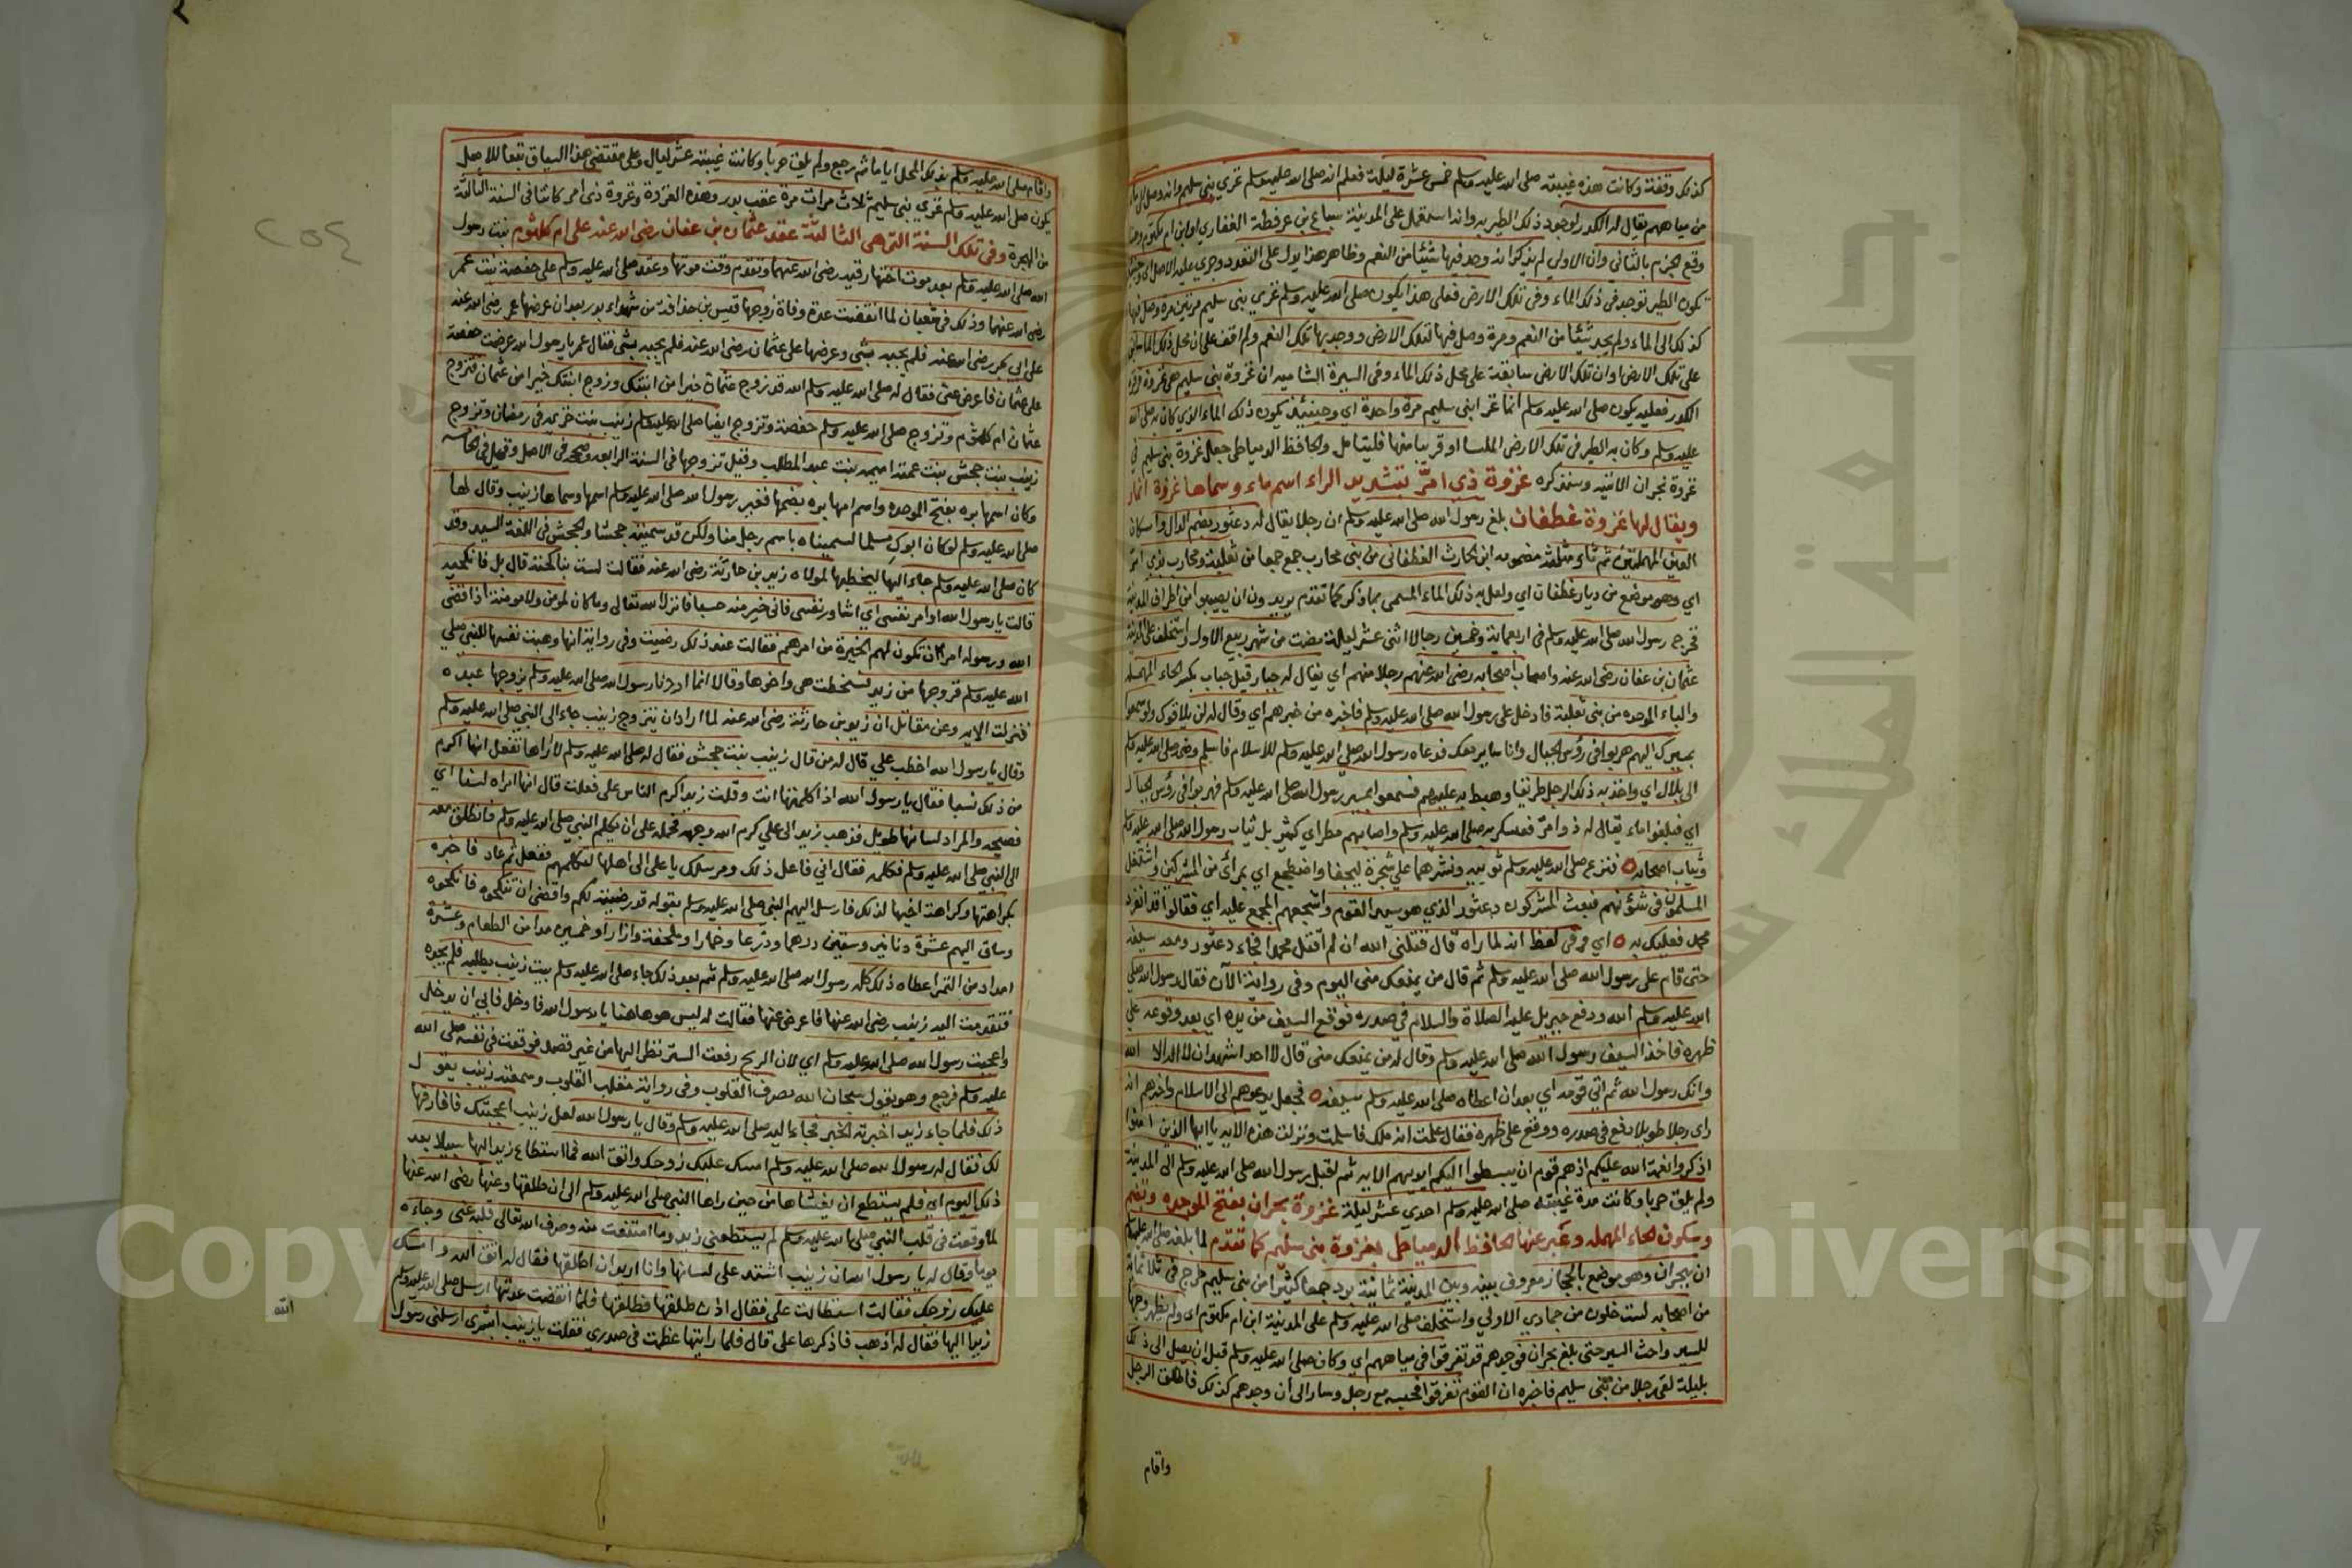 كذلك وقفنة وكانت هذه غيبته صلى الله عليه وسلم خمس عشرة ليلة فعلم انه صلى الله عليه وسلم غزي بني سليم وانه وصل الى ماء
من مياههم يقال له الكدر لوجود ذلك الطير به وانه استعمل على المدينة سباع بن عرفطة الغفاري او ابن ام مكتوم
وقع الجزم بالثاني وان الاولي لم يذكر انه وجد فيها شيئا من النعم وظاهر هذا يدل على التعدد وجري عليه الاصل
تكون الطير توجد في ذلك الماء وفي تلك الارض فعلى هذا يكون صلى الله عليه وسلم غزي بني سليم مرتين مرة وصل فيها
كذلك الى الماء ولم يجد شيئا من النعم ومرة وصل فيها لتلك الارض ووجد بها تلك النعم ولم اقف على ان محل ذلك الماء
على تلك الارض او ان تلك الارض سابقة على محل ذلك الماء وفي السيرة الشامية ان غزوة بني سليم هي غزوة قرقرة
الكدر فعليه يكون صلى الله عليه وسلم انما غزا بني سليم مرة واحدة اي وحينئذ يكون ذلك الماء الذي كان به صلى الله
عليه وسلم وكان به الطير في تلك الارض الملسا او قريبا منها فليتامل والحافظ الدمياطي جعل غزوة بني سليم هي
غزوة نجران الاتية وستذكره غزوة ذي امرّ بتشديد الراء اسم ماء وسماها غزوة انمار
ويقال لها غزوة غطفان بلغ رسول الله صلى الله عليه وسلم ان رجلا يقال له دعثور بضم الدال واسكان
العين المهملتين ثم ثاء مثلثة مضمومة ابن الحارث الغطفاني من بني محارب جمع جمعا من ثعلبة ومحارب بذي امرّ
اي وهو موضع من ديار غطفان اي ولعل به ذلك الماء المسمى بما ذكر كما تقدم يريدون ان يصيبوا من اطراف المدينة
فخرج رسول الله صلى الله عليه وسلم في اربعمائة وخمسين رجلا لاثنى عشر ليلة مضت من شهر ربيع الاول واستخلف على المدينة
عثمان بن عفان رضى الله عنه واصاب اصحابه رضى الله عنهم رجلا منهم اي يقال له جبار قيل حباب بكسر الحاء المهملة
والباء الموحده من بني ثعلبة فادخل على رسول الله صلى الله عليه وسلم فاخبره من خبرهم اي وقال له لن يلاقوك ولو سمعوا
بمسيرك اليهم هربوا في رؤس الجبال وانا سائر معك فدعاه رسول الله صلى الله عليه وسلم للاسلام فاسلم وضمه صلى الله عليه وسلم
الى بلال اي واخذ به ذلك الرجل طريقا وهبط به عليهم فسمعوا بمسير رسول الله صلى الله عليه وسلم فهربوا في رؤس الجبال
اي فبلغوا ماء يقال له ذو امرّ فعسكر به صلى الله عليه وسلم واصابهم مطر اي كثير بل ثياب رسول الله صلى الله عليه وسلم
وثياب اصحابه فنزع صلى الله عليه وسلم ثوبيه ونشرهما على شجرة ليجفا واضطجع اي بمرأى من المشركين واشتغل
المسلمون في شؤنهم فبعث المشركون دعثور الذي هو سيد القوم واشجعهم المجمع عليه اي فقالوا قد انفرد
محمد فعليك به اي وفي لفظ انه لما راه قال قتلني الله ان لم اقتل محمدا فجاء دعثور ومعه سيفه
حتى قام على رسول الله صلى الله عليه وسلم ثم قال من يمنعك مني اليوم وفي رواية الآن فقال رسول الله صلى
الله عليه وسلم الله ودفع جبريل عليه الصلاة والسلام في صدره فوقع السيف من يده اي بعد وقوعه على
ظهره فاخذ السيف رسول الله صلى الله عليه وسلم وقال له من يمنعك مني قال لا احد اشهد ان لا اله الا الله
وانك رسول الله ثم اتي قومه اي بعد ان اعطاه صلى الله عليه وسلم سيفه فجعل يدعوهم الى الاسلام واخبرهم انه
راى رجلا طويلا دفع في صدره ووقع على ظهره فقال علمت انه ملك فاسلمت ونزلت هذه الاية يا ايها الذين امنوا
اذكروا نعمة الله عليكم اذ هم قوم ان يبسطوا اليكم ايديهم الاية ثم اقبل رسول الله صلى الله عليه وسلم الى المدينة
ولم يلق حربا وكانت مدة غيبته صلى الله عليه وسلم احدي عشر ليلة غزوة بحران بفتح الموحده وتضم
وسكون الحاء المهمله وعبر عنها الحافظ الدمياطي بغزوة بني سليم كما تقدم لما بلغه صلى الله عليه وسلم
ان ببحران وهو موضع بالحجاز معروف بينه وبين المدينة ثمانية برد جمعا كثيرا من بني سليم خرج في ثلاثمائة
من اصحابه لست خلون من جمادي الاولي واستخلف صلى الله عليه وسلم على المدينة ابن ام مكتوم اي ولم يظهر وجها
للسير واحث السير حتى بلغ بحران فوجدهم قد تفرقوا في مياههم اي وكان صلى الله عليه وسلم قبل ان يصل الى ذلك
بليلة لقى رجلا من بني سليم فاخبره ان القوم تفرقوا فحبسه مع رجل وسار الى أن وجدهم كذلك فاطلق الرجل
واقام
٢٥٤
واقام صلى الله عليه وسلم بذلك المحل اياما ثم رجع ولم يلق حربا وكانت غيبته عشر ليال وعلى مقتضى هذا السياق تبعا للاصل
يكون صلى الله عليه وسلم غزي بني سليم ثلاث مرات مرة عقب بدر وهذه الغزوة وغزوة ذي امر كانتا في السنة الثالثة
من الهجرة وفي تلك السنة التي هي الثالثة عقد عثمان بن عفان رضى الله عنه على ام كلثوم بنت رسول
الله صلى الله عليه وسلم بعد موت اختها رقية رضى الله عنهما وتقدم وقت موتها وعقد صلى الله عليه وسلم على حفصة بنت عمر
رضى الله عنهما وذلك في شعبان لما انقضت عدة وفاة زوجها قيس بن حذافة من شهداء بدر بعد ان عرضها عمر رضى الله عنه
على ابي بكر رضى الله عنه فلم يجبه بشى وعرضها على عثمان رضى الله عنه فلم يجبه بشى فقال عمر يا رسول الله عرضت حفصة
على عثمان فاعرض عني فقال له صلى الله عليه وسلم الله قد زوج عثمان خيرا من ابنتك وزوج ابنتك خيرا من عثمان فتزوج
عثمان ام كلثوم وتزوج صلى الله عليه وسلم حفصة وتزوج ايضا صلى الله عليه وسلم زينب بنت خزيمة في رمضان وتزوج
زينب بنت جحش بنت عمته اميمة بنت عبد المطلب وقيل تزوجها في السنة الرابعة وصححه في الاصل وقيل في الخامسة
وكان اسمها بره بفتح الموحده واسم امها بره بضمها فغير رسول الله صلى الله عليه وسلم اسمها وسماها زينب وقال لها
صلى الله عليه وسلم لو كان ابوك مسلما لسميناه باسم رجل منا ولكن قد سميته جحشا والجحش في اللغة السيد وقد
كان صلى الله عليه وسلم جاء اليها ليخطبها لمولاه زيد بن حارثة رضى الله عنه فقالت لست بناكحته قال بل فانكحيه
قالت يا رسول الله اوامر نفسى اي اشاور نفسى فاني خير منه حسبا فانزل الله تعالى وما كان لمؤمن ولا مومنة اذا قضى
الله ورسوله امرا ان تكون لهم الخيرة من امرهم فقالت عند ذلك رضيت وفي رواية انها وهبت نفسها للنبي صلى
الله عليه وسلم فزوجها من زيد فسخطت هي واخوها وقالا انما اردنا رسول الله صلى الله عليه وسلم يزوجها عبده
فنزلت الاية وعن مقاتل ان زيد بن حارثة رضى الله عنه لما اراد ان يتزوج زينب جاء الى النبي صلى الله عليه وسلم
وقال يا رسول الله اخطب علي قال له من قال زينب بنت جحش فقال له صلى الله عليه وسلم لا اراها تفعل انها اكرم
من ذلك نسبا فقال يا رسول الله اذا كلمتها انت وقلت زيد اكرم الناس على فعلت قال انها امراة لسنا اي
فصيحه والمراد لسانها طويل فذهب زيد الى علي كرم الله وجهه فحمله على ان يكلم النبي صلى الله عليه وسلم فانطلق معه
الى النبي صلى الله عليه وسلم فكلمه فقال اني فاعل ذلك ومرسلك يا على الى اهلها لتكلمهم ففعل ثم عاد فاخبره
بكراهتها وكراهة اخيها لذلك فارسل اليهم النبي صلى الله عليه وسلم بقوله قد رضيته لكم واقضى ان تنكحوه فانكحوه
وساق اليهم عشرة دنانير وستين درهما ودرعا وخمارا وملحفة وازارا وخمسين مدا من الطعام وعشرة
امداد من التمر اعطاه ذلك كله رسول الله صلى الله عليه وسلم ثم بعد ذلك جاء صلى الله عليه وسلم بيت زينب يطلبه فلم يجده
فتقدمت اليه زينب رضى الله عنها فاعرض عنها فقالت له ليس هو هاهنا يا رسول الله فادخل فابى ان يدخل
واعجبت رسول الله صلى الله عليه وسلم اي لان الريح رفعت الستر نظر اليها من غير قصد فوقعت في نفسه صلى الله
عليه وسلم فرجع وهو يقول سبحان الله مصرف القلوب وفي رواية مقلب القلوب وسمعته زينب يقول
ذلك فلما جاء زيد اخبرته الخبر فجاء اليه صلى الله عليه وسلم وقال يا رسول الله لعل زينب اعجبتك فافارقها
لك فقال له رسول الله صلى الله عليه وسلم امسك عليك زوجك واتق الله فما استطاع زيد اليها سبيلا بعد
ذلك اليوم اي فلم يستطع ان يغشاها من حين راها النبي صلى الله عليه وسلم الى ان طلقها وعنها رضى الله عنها
لما وقعت في قلب النبي صلى الله عليه وسلم لم يستطعني زيد وما امتنعت منه وصرف الله تعالى قلبه عني وجاءه
يوما وقال له يا رسول الله ان زينب اشتد على لسانها وانا اريد ان اطلقها فقال له اتق الله وامسك
عليك زوجك فقالت استطالت على فقال اذن طلقها فطلقها فلما انقضت عدتها ارسل صلى الله عليه وسلم
زيدا اليها فقال له اذهب فاذكرها على قال فلما رايتها عظمت في صدري فقلت يا زينب ابشري ارسلني رسول
الله
جامعة الملك سعود
Copyright © King Saud University